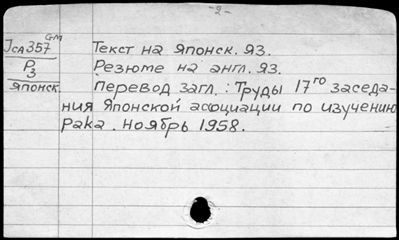 -2-
JcA357 GM
P3
японск.
Текст на японск. яз.
Резюме на англ. яз.
Перевод загл.: Труды 17го заседа-
ния Японской асоциации по изучению
рака. ноябрь 1958.